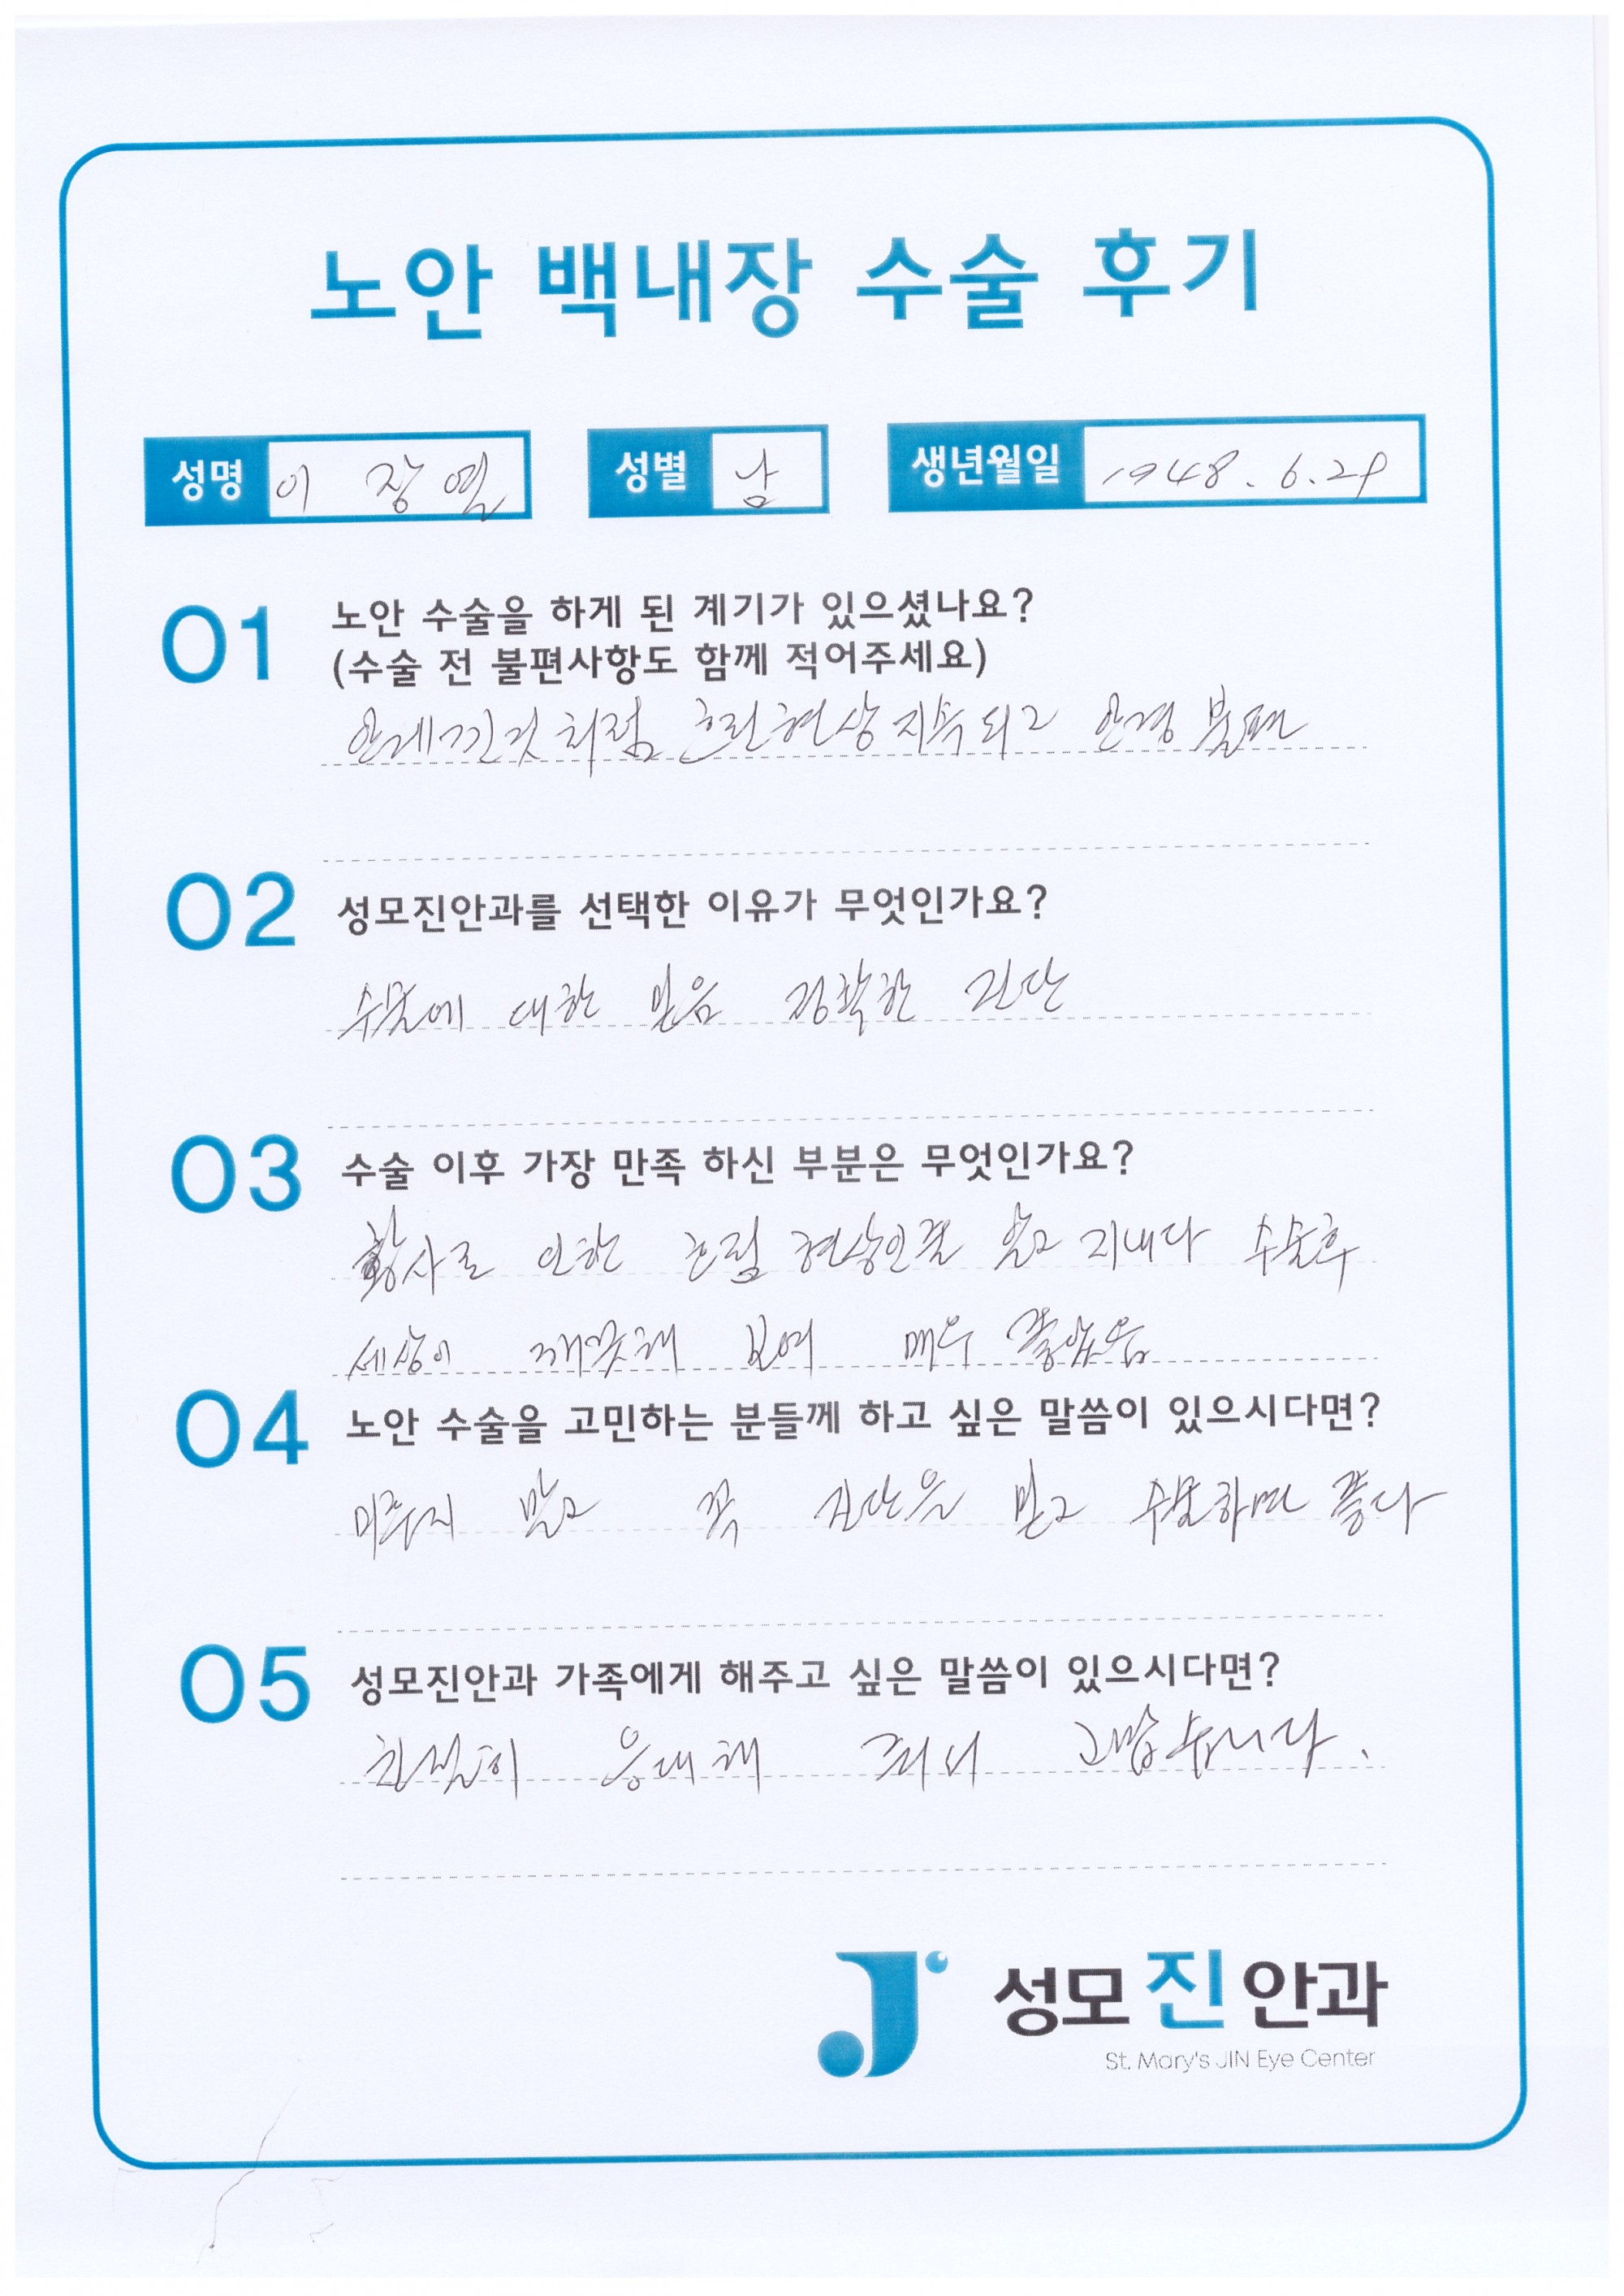 노안 백내장 수술 후기
성명 이 장열 성별 남 생년월일 1948. 6. 29
01 노안 수술을 하게 된 계기가 있으셨나요?
(수술 전 불편사항도 함께 적어주세요)
안개낀것 처럼 흐린현상 지속되고 안경 불편
02 성모진안과를 선택한 이유가 무엇인가요?
수술에 대한 믿음 정확한 진단
03 수술 이후 가장 만족 하신 부분은 무엇인가요?
황사로 인한 흐림 현상인줄 알고 지내다 수술후
세상이 깨끗해 보여 매우 좋았음
04 노안 수술을 고민하는 분들께 하고 싶은 말씀이 있으시다면?
미루지 말고 꼭 진단을 받고 수술하면 좋다
05 성모진안과 가족에게 해주고 싶은 말씀이 있으시다면?
친절히 응대해 줘서 고맙습니다.
성모진안과
St. Mary's JIN Eye Center